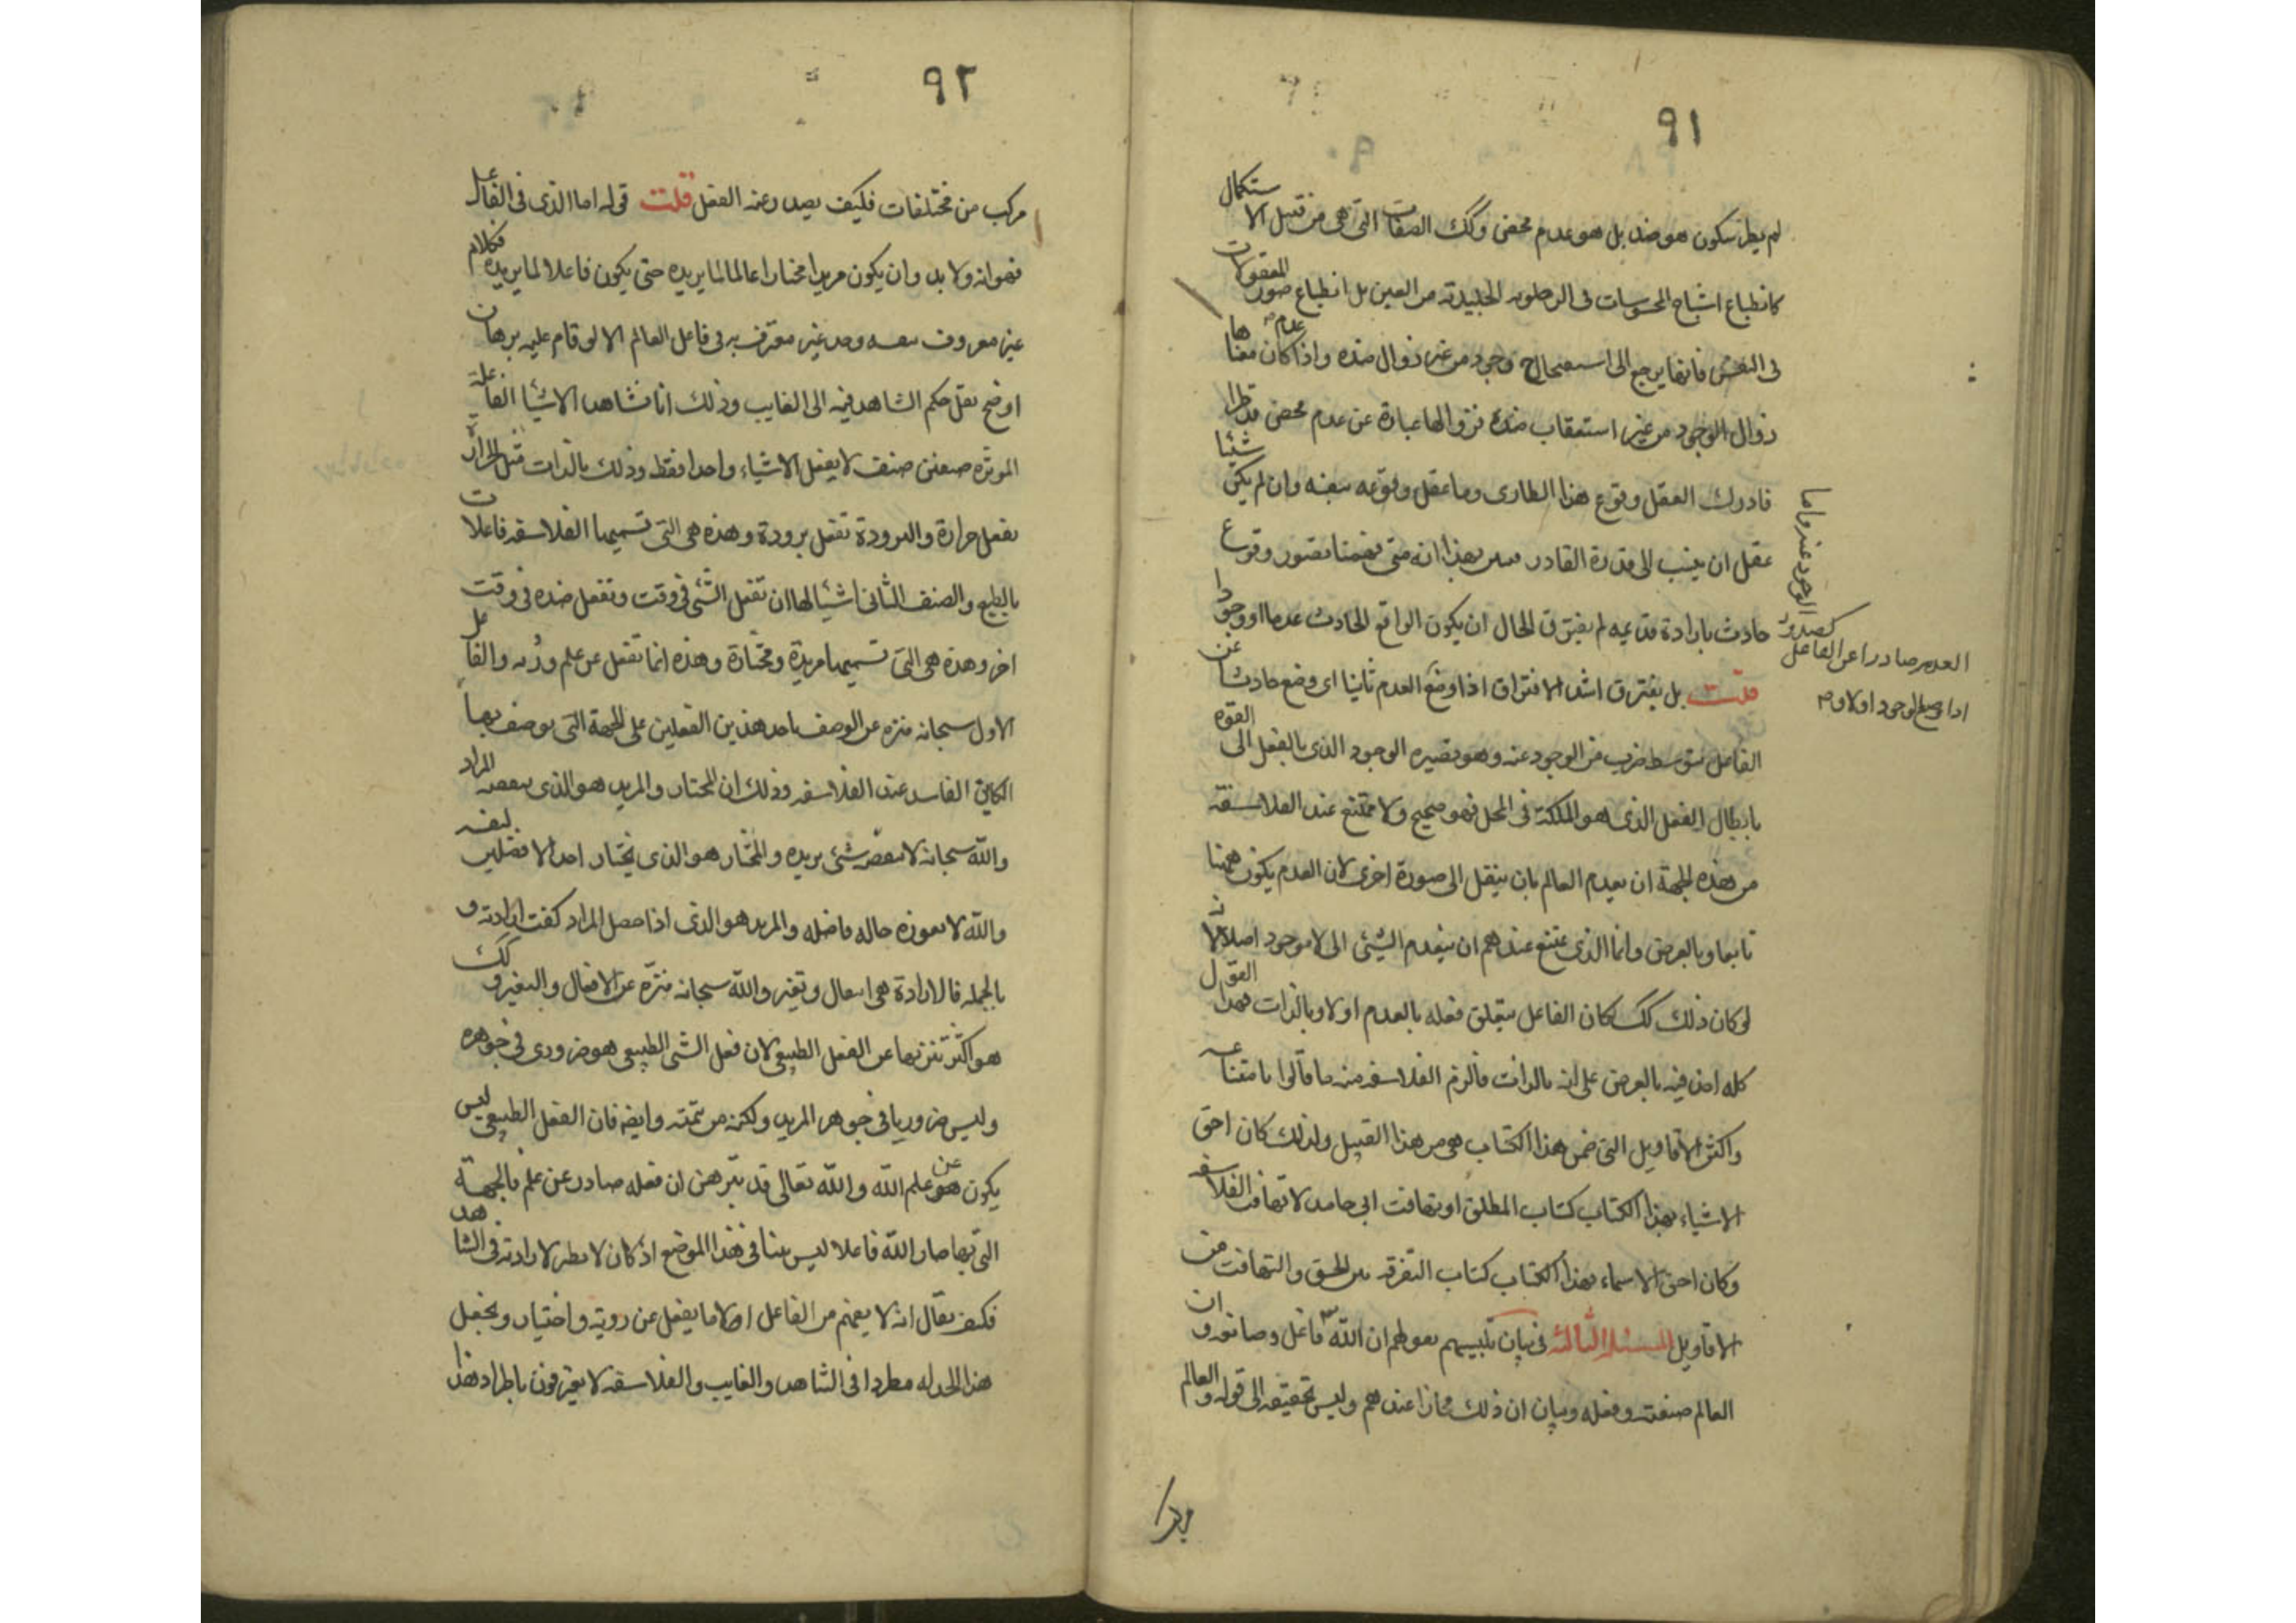 ٩١
لم يطر سكون هو ضده بل هو عدم محض وكك الصفات التى هى من قبيل الاستكمال
كانطباع اشباح المحسوسات فى الرطوبه الجليدية من العين بل انطباع صور المعقولات
فى النفس فانها يرجع الى استفتاح وجود من غير زوال ضده واذا كان عدم معناها
زوال الوجود من غير استعقاب ضده فزوالها عبارة عن عدم محض قد طرا
فادرك العقل وقوع هذا الطارى وما عقل وقوعه بنفسه وان لم يكن شيئا
عقل ان ينسب الى قدرة القادر فتبين بهذا انه متى تصور وقوع
حادث بارادة قديمه لم يفترق الحال ان يكون الواقع الحادث عدما او وجودا
قلت بل يفترق اشد الافتراق اذا وضع العدم ثانيا اى وضع حادثا عن
الفاعل بتوسط ضرب من الوجود عنه وهو تصيره الوجود الذى بالفعل الى القوة
بابطال الفعل الذى هو الملكة فى المحل فهو صحيح ولا ممتنع عند الفلاسفة
من هذه الجهة ان يعدم العالم بان ينتقل الى صورة اخرى لان العدم يكون ههنا
تابعا وبالعرض وانما الذى يمتنع عندهم ان ينعدم الشئ الى لا موجود اصلا لانه
لو كان ذلك كك لكان الفاعل يتعلق فعله بالعدم اولا وبالذات فهذا القول
كله اخذ فيه بالعرض على انه بالذات فالزم الفلاسفه منه ما قالوا بامتناعه
واكثر الاقاويل التى ضمن هذا الكتاب هى من هذا القبيل ولذلك كان احق
الاشياء بهذا الكتاب كتاب المطلق او تهافت ابى حامد لا تهافت الفلاسفه
وكان احق الاسماء بهذا الكتاب كتاب التفرقه بين الحق والتهافت من
الاقاويل المسئلة الثالثة فى بيان تلبيسهم بقولهم ان الله فاعل وصانعه وان
العالم صنعته وفعله وبيان ان ذلك مجازا عندهم وليس بحقيقه الى قوله والعالم
كصدور الوجود عنه واما
العدم صادرا عن الفاعل
اذا وضع الوجود اولا و
٩٢
مركب من مختلفات فكيف يصدر عنه الفعل قلت قوله اما الذى فى الفاعل
فهو انه ولا بد وان يكون مريدا مختارا عالما لما يريده حتى يكون فاعلا لما يريده فكلام
غير معروف بنفسه وحد غير معترف به فى فاعل العالم الا لو قام عليه برهان
او صح نقل حكم الشاهد فيه الى الغايب وذلك انا نشاهد الاشيا الفاعلة
الموثره صنفين صنف لا يفعل الا شياء واحدا فقط وذلك بالذات مثل الحرارة
تفعل حرارة والبرودة تفعل برودة وهذه هى التى تسميها الفلاسفه فاعلات
بالطبع والصنف الثانى اشيا لها ان تفعل الشئ فى وقت وتفعل ضده فى وقت
اخر وهذه هى التى تسميها مريدة ومختارة وهذه انما تفعل عن علم وروية والفاعل
الاول سبحانه منزه عن الوصف باحد هذين الفعلين على الجهة التى يوصف بها
الكاين الفاسد عند الفلاسفه وذلك ان المختار والمريد هو الذى ينقصه المراد
والله سبحانه لا ينقصه شئ يريده والمختار هو الذى يختار احد الافضلين لنفسه
والله لا يعوزه حاله فاضله والمريد هو الذى اذا حصل المراد كفت ارادته و
بالجمله فالارادة هى انفعال وتغير والله سبحانه منزه عن الانفعال والتغير وكك
هو اكثر تنزيها عن الفعل الطبيعى لان فعل الشئ الطبيعى هو ضرورى فى جوهره
وليس ضروريا فى جوهر المريد ولكنه من تتمته وايضه فان الفعل الطبيعى ليس
يكون عن علم الله والله تعالى قد تبرهن ان فعله صادر عن علم فالجهة
التى بها صار الله فاعلا ليس بينا فى هذا الموضع اذ كان لا نظير لارادته فى الشاهد
فكيف يقال انه لا يفهم من الفاعل الا ما يفعل عن روية واختيار ويجعل
هذا الحد له مطردا فى الشاهد والغايب والفلاسفه لا يعترفون باطراد هذا